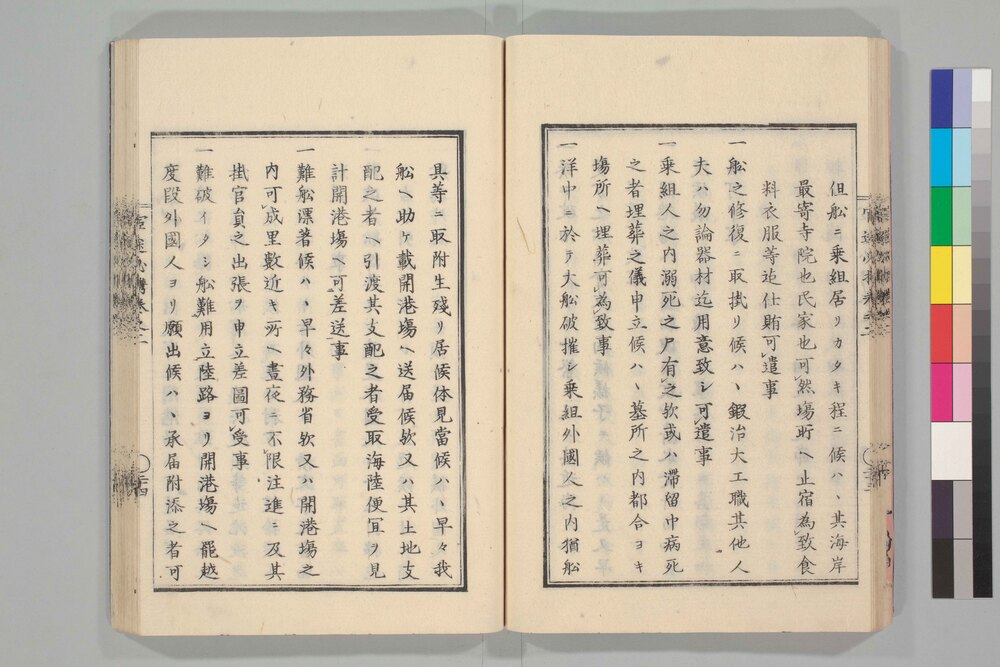 但船ニ乗組居リカタキ程ニ候ハヽ其海岸
最寄寺院也民家也可然場所ヘ止宿為致食
料衣服等迄仕賄可遣事
一船之修復ニ取掛リ候ハヽ鍛冶大工職其他人
夫ハ勿論器材迄用意致シ可遣事
一乗組人之内溺死之尸有之欤或ハ滞留中病死
之者埋葬之儀申立候ハヽ墓所之内都合ヨキ
場所ヘ埋葬可為致事
一洋中ニ於テ大船破摧シ乗組外國人之内猶船
具等ニ取附生殘リ居候体見當候ハヽ早々我
船ヘ助ケ載開港場ヘ送届候欤又ハ其土地支
配之者ヘ引渡其支配之者受取海陸便宜ヲ見
計開港場ヘ可差送事
一難船漂著候ハヽ早々外務省欤又ハ開港場之
内可成里數近キ所ヘ晝夜ニ不限注進ニ及其
掛官員之出張ヲ申立差圖可受事
一難破イタシ船難用立陸路ヨリ開港場ヘ罷越
度段外國人ヨリ願出候ハヽ承届附添之者可